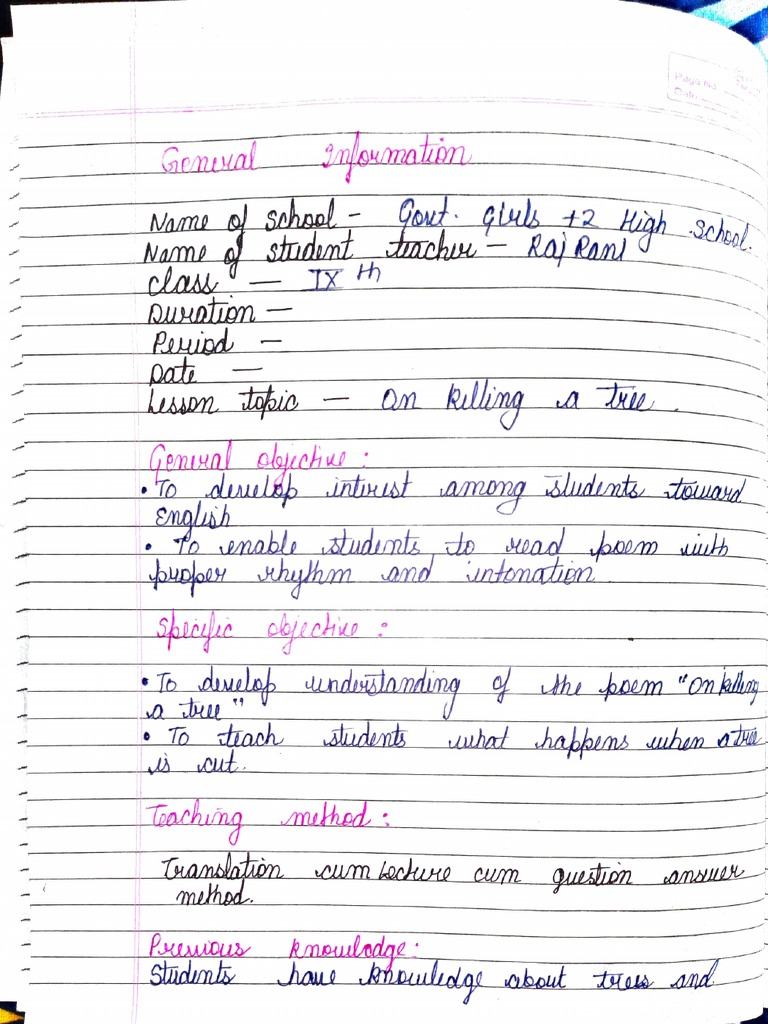 Page No.
Date
General Information
Name of school - Govt. Girls +2 High School.
Name of student teacher - Raj Rani
Class - IX th
Duration -
Period -
Date -
Lesson topic - On killing a tree.
General objective :
• To develop interest among students toward
English
• To enable students to read poem with
proper rhythm and intonation
Specific objective :
• To develop understanding of the poem "On killing
a tree"
• To teach students what happens when a tree
is cut.
Teaching method :
Translation cum Lecture cum question answer
method.
Previous knowledge :
Students have knowledge about trees and